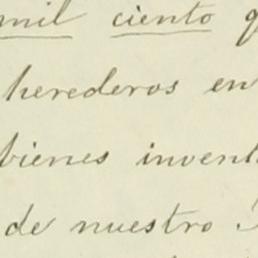 mil ciento
herederos en
bienes invent
de nuestro